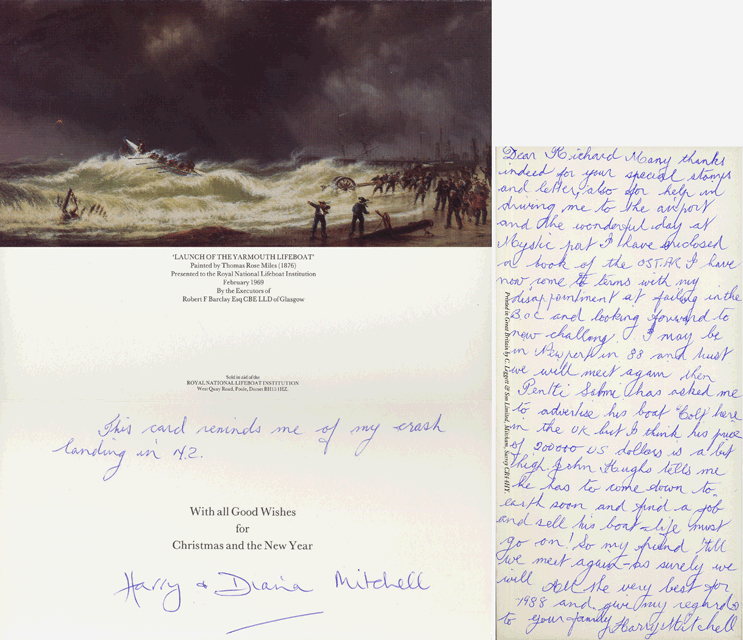 'LAUNCH OF THE YARMOUTH LIFEBOAT'
Painted by Thomas Rose Miles (1876)
Presented to the Royal National Lifeboat Institution
February 1969
By the Executors of
Robert F Barclay Esq CBE LLD of Glasgow
Sold in aid of the
ROYAL NATIONAL LIFEBOAT INSTITUTION
West Quay Road, Poole, Dorset BH15 1HZ.
This card reminds me of my crash
landing in N.Z.
With all Good Wishes
for
Christmas and the New Year
Harry & Diana Mitchell
Dear Richard Many thanks
indeed for your special stamps
and letter, also for help in
driving me to the airport
and the wonderful day at
Mystic port I have enclosed
a book of the OSTAR I have
now come to terms with my
disappointment at failing in the
BOC and looking forward to
new challeng. I may be
in Newport in 88 and trust
we will meet again then
Pentti Salmi has asked me
to advertise his boat "Colt" here
in the UK but I think his price
of 200000 US dollars is a bit
high. John Hughs tells me
he has to come down to
earth soon and find a job
and sell his boat - life must
go on! So my friend 'till
we meet again - as surely we
will All the very best for
1988 and give my regards
to your family Harry Mitchell
Printed in Great Britain by C. Leggett & Son Limited, Mitcham, Surrey CR4 4HY.